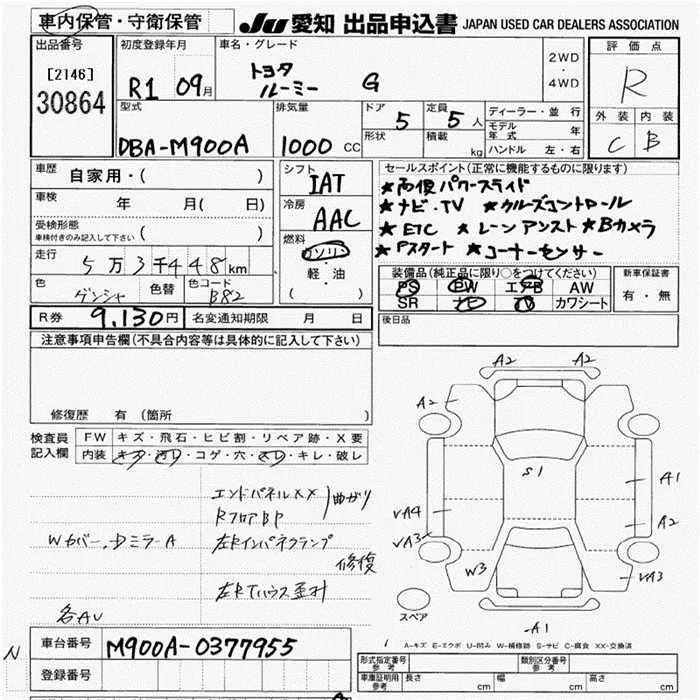 車内保管・守衛保管 JU 愛知 出品申込書 JAPAN USED CAR DEALERS ASSOCIATION
出品番号 初度登録年月 車名・グレード 評価点
[2146] R1 09月 トヨタ 2WD・4WD R
30864 ルーミー G
型式 排気量 ドア 定員 ディーラー・並行 外装 内装
DBA-M900A 1000 CC 5 5人 モデル年式 年 C B
形状 積載 kg ハンドル 左・右
車歴 自家用・( ) シフト IAT セールスポイント(正常に機能するものに限ります)
★両側パワースライド
車検 年 月( 日) 冷房 AAC ★ナビ・TV ★クルーズコントロール
受検形態 ★ETC ★レーンアシスト ★Bカメラ
車検付きのみ記入して下さい ( ) 燃料 ★Pスタート ★コーナーセンサー
走行 5万3千448km ガソリン 装備品(純正品に限り○をつけてください) 新車保証書
色 色替 色コード 軽・油 PS PW エアB AW 有・無
B82 ( ) SR ナビ TV カワシート
R券 9,130円 名変通知期限 月 日 後日品
注意事項申告欄(不具合内容等は具体的に記入して下さい)
修復歴 有 (箇所 )
検査員 FW キズ・飛石・ヒビ割・リペア跡・X要
記入欄 内装 キズ・汚レ・コゲ・穴・スレ・キレ・破レ
エンドパネルXX 曲がり
Rフロア BP
Wカバー、Dミラー A 左Rインパネクランプ
修復
左RTハウス歪み
各AU
A2 A2
A2
S1
A1
VA4
A2
VA3
W3
VA3
スペア
A1
A-キズ E-エクボ U-凹み W-補修跡 S-サビ C-腐食 XX-交換済
N 車台番号 M900A-0377955
登録番号
形式指定番号 参考 類別区分番号 参考
車庫証明用 参考 長さ cm 幅 cm 高さ cm